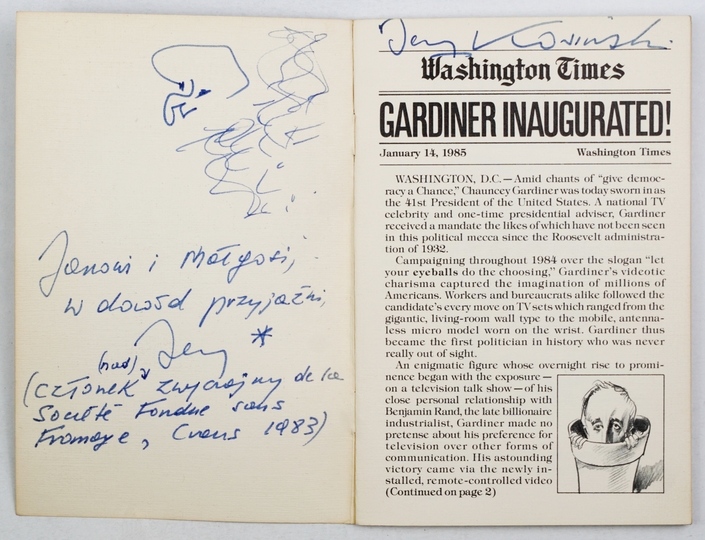 Janowi i Małgosi,
w dowód przyjaźni,
Jerzy *
(nad)
(członek zwyczajny de la
Société Fondue sans
Fromage, Crans 1983)
Jerzy Kosiński
Washington Times
GARDINER INAUGURATED!
January 14, 1985 Washington Times
WASHINGTON, D.C.—Amid chants of “give democ-
racy a Chance,” Chauncey Gardiner was today sworn in as
the 41st President of the United States. A national TV
celebrity and one-time presidential adviser, Gardiner
received a mandate the likes of which have not been seen
in this political mecca since the Roosevelt administra-
tion of 1932.
Campaigning throughout 1984 over the slogan “let
your eyeballs do the choosing,” Gardiner’s videotic
charisma captured the imagination of millions of
Americans. Workers and bureaucrats alike followed the
candidate’s every move on TV sets which ranged from the
gigantic, living-room wall type to the mobile, antenna-
less micro model worn on the wrist. Gardiner thus
became the first politician in history who was never
really out of sight.
An enigmatic figure whose overnight rise to promi-
nence began with the exposure—
on a television talk show—of his
close personal relationship with
Benjamin Rand, the late billionaire
industrialist, Gardiner made no
pretense about his preference for
television over other forms of
communication. His astounding
victory came via the newly in-
stalled, remote-controlled video
(Continued on page 2)